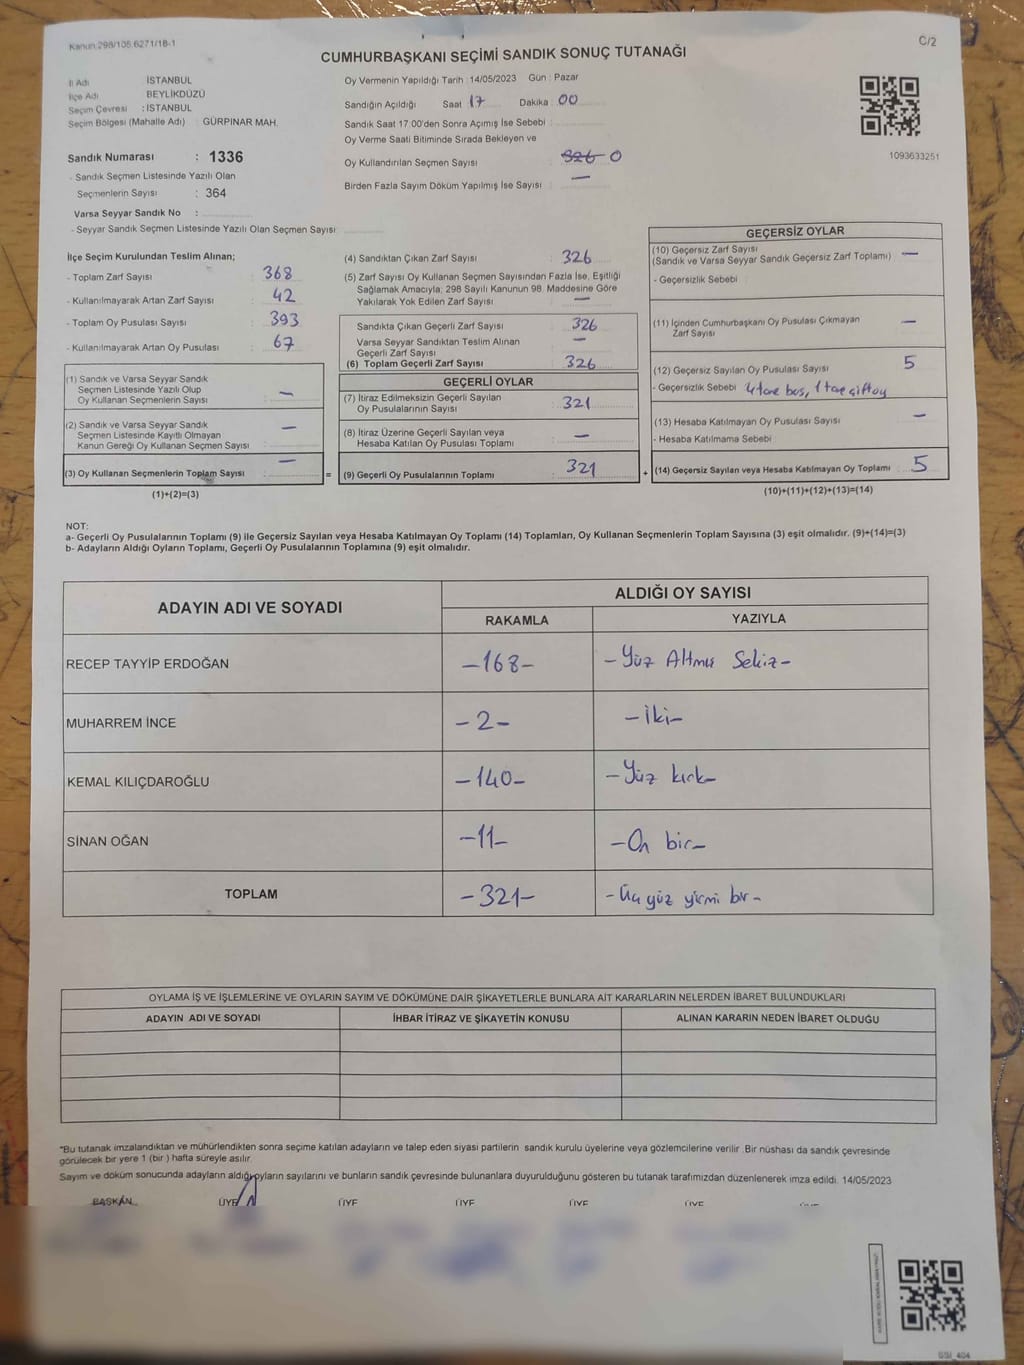 Kanun:298/105,6271/18-1
C/2
CUMHURBAŞKANI SEÇİMİ SANDIK SONUÇ TUTANAĞI
İl Adı İSTANBUL
İlçe Adı BEYLİKDÜZÜ
Seçim Çevresi : İSTANBUL
Seçim Bölgesi (Mahalle Adı) : GÜRPINAR MAH.
Sandık Numarası : 1336
- Sandık Seçmen Listesinde Yazılı Olan
Seçmenlerin Sayısı : 364
Varsa Seyyar Sandık No :
- Seyyar Sandık Seçmen Listesinde Yazılı Olan Seçmen Sayısı
Oy Vermenin Yapıldığı Tarih : 14/05/2023 Gün : Pazar
Sandığın Açıldığı Saat 17 Dakika 00
Sandık Saat 17:00'den Sonra Açımış İse Sebebi
Oy Verme Saati Bitiminde Sırada Bekleyen ve
Oy Kullandırılan Seçmen Sayısı : 326 0
Birden Fazla Sayım Döküm Yapılmış İse Sayısı : —
1093633251
İlçe Seçim Kurulundan Teslim Alınan;
- Toplam Zarf Sayısı : 368
- Kullanılmayarak Artan Zarf Sayısı : 42
- Toplam Oy Pusulası Sayısı : 393
- Kullanılmayarak Artan Oy Pusulası : 67
(1) Sandık ve Varsa Seyyar Sandık
Seçmen Listesinde Yazılı Olup
Oy Kullanan Seçmenlerin Sayısı : —
(2) Sandık ve Varsa Seyyar Sandık
Seçmen Listesinde Kayıtlı Olmayan
Kanun Gereği Oy Kullanan Seçmen Sayısı : —
(3) Oy Kullanan Seçmenlerin Toplam Sayısı : —
(1)+(2)=(3)
=
(4) Sandıktan Çıkan Zarf Sayısı : 326
(5) Zarf Sayısı Oy Kullanan Seçmen Sayısından Fazla İse, Eşitliği
Sağlamak Amacıyla; 298 Sayılı Kanunun 98. Maddesine Göre
Yakılarak Yok Edilen Zarf Sayısı : —
Sandıkta Çıkan Geçerli Zarf Sayısı : 326
Varsa Seyyar Sandıktan Teslim Alınan
Geçerli Zarf Sayısı : —
(6) Toplam Geçerli Zarf Sayısı : 326
GEÇERLİ OYLAR
(7) İtiraz Edilmeksizin Geçerli Sayılan
Oy Pusulalarının Sayısı : 321
(8) İtiraz Üzerine Geçerli Sayılan veya
Hesaba Katılan Oy Pusulası Toplamı : —
(9) Geçerli Oy Pusulalarının Toplamı : 321
+
GEÇERSİZ OYLAR
(10) Geçersiz Zarf Sayısı
(Sandık ve Varsa Seyyar Sandık Geçersiz Zarf Toplamı) —
- Geçersizlik Sebebi :
(11) İçinden Cumhurbaşkanı Oy Pusulası Çıkmayan
Zarf Sayısı —
(12) Geçersiz Sayılan Oy Pusulası Sayısı 5
- Geçersizlik Sebebi 4 tane boş, 1 tane çift oy
(13) Hesaba Katılmayan Oy Pusulası Sayısı —
- Hesaba Katılmama Sebebi
(14) Geçersiz Sayılan veya Hesaba Katılmayan Oy Toplamı : 5
(10)+(11)+(12)+(13)=(14)
NOT:
a- Geçerli Oy Pusulalarının Toplamı (9) ile Geçersiz Sayılan veya Hesaba Katılmayan Oy Toplamı (14) Toplamları, Oy Kullanan Seçmenlerin Toplam Sayısına (3) eşit olmalıdır. (9)+(14)=(3)
b- Adayların Aldığı Oyların Toplamı, Geçerli Oy Pusulalarının Toplamına (9) eşit olmalıdır.
ADAYIN ADI VE SOYADI
ALDIĞI OY SAYISI
RAKAMLA YAZIYLA
RECEP TAYYİP ERDOĞAN -168- -Yüz Altmış Sekiz-
MUHARREM İNCE -2- -İki-
KEMAL KILIÇDAROĞLU -140- -Yüz kırk-
SİNAN OĞAN -11- -On bir-
TOPLAM -321- -Üç yüz yirmi bir-
OYLAMA İŞ VE İŞLEMLERİNE VE OYLARIN SAYIM VE DÖKÜMÜNE DAİR ŞİKAYETLERLE BUNLARA AİT KARARLARIN NELERDEN İBARET BULUNDUKLARI
ADAYIN ADI VE SOYADI İHBAR İTİRAZ VE ŞİKAYETİN KONUSU ALINAN KARARIN NEDEN İBARET OLDUĞU
*Bu tutanak imzalandıktan ve mühürlendikten sonra seçime katılan adayların ve talep eden siyasi partilerin sandık kurulu üyelerine veya gözlemcilerine verilir. Bir nüshası da sandık çevresinde
görülecek bir yere 1 (bir ) hafta süreyle asılır.
Sayım ve döküm sonucunda adayların aldığı oyların sayılarını ve bunların sandık çevresinde bulunanlara duyurulduğunu gösteren bu tutanak tarafımızdan düzenlenerek imza edildi. 14/05/2023
BAŞKAN ÜYE ÜYE ÜYE ÜYE ÜYE